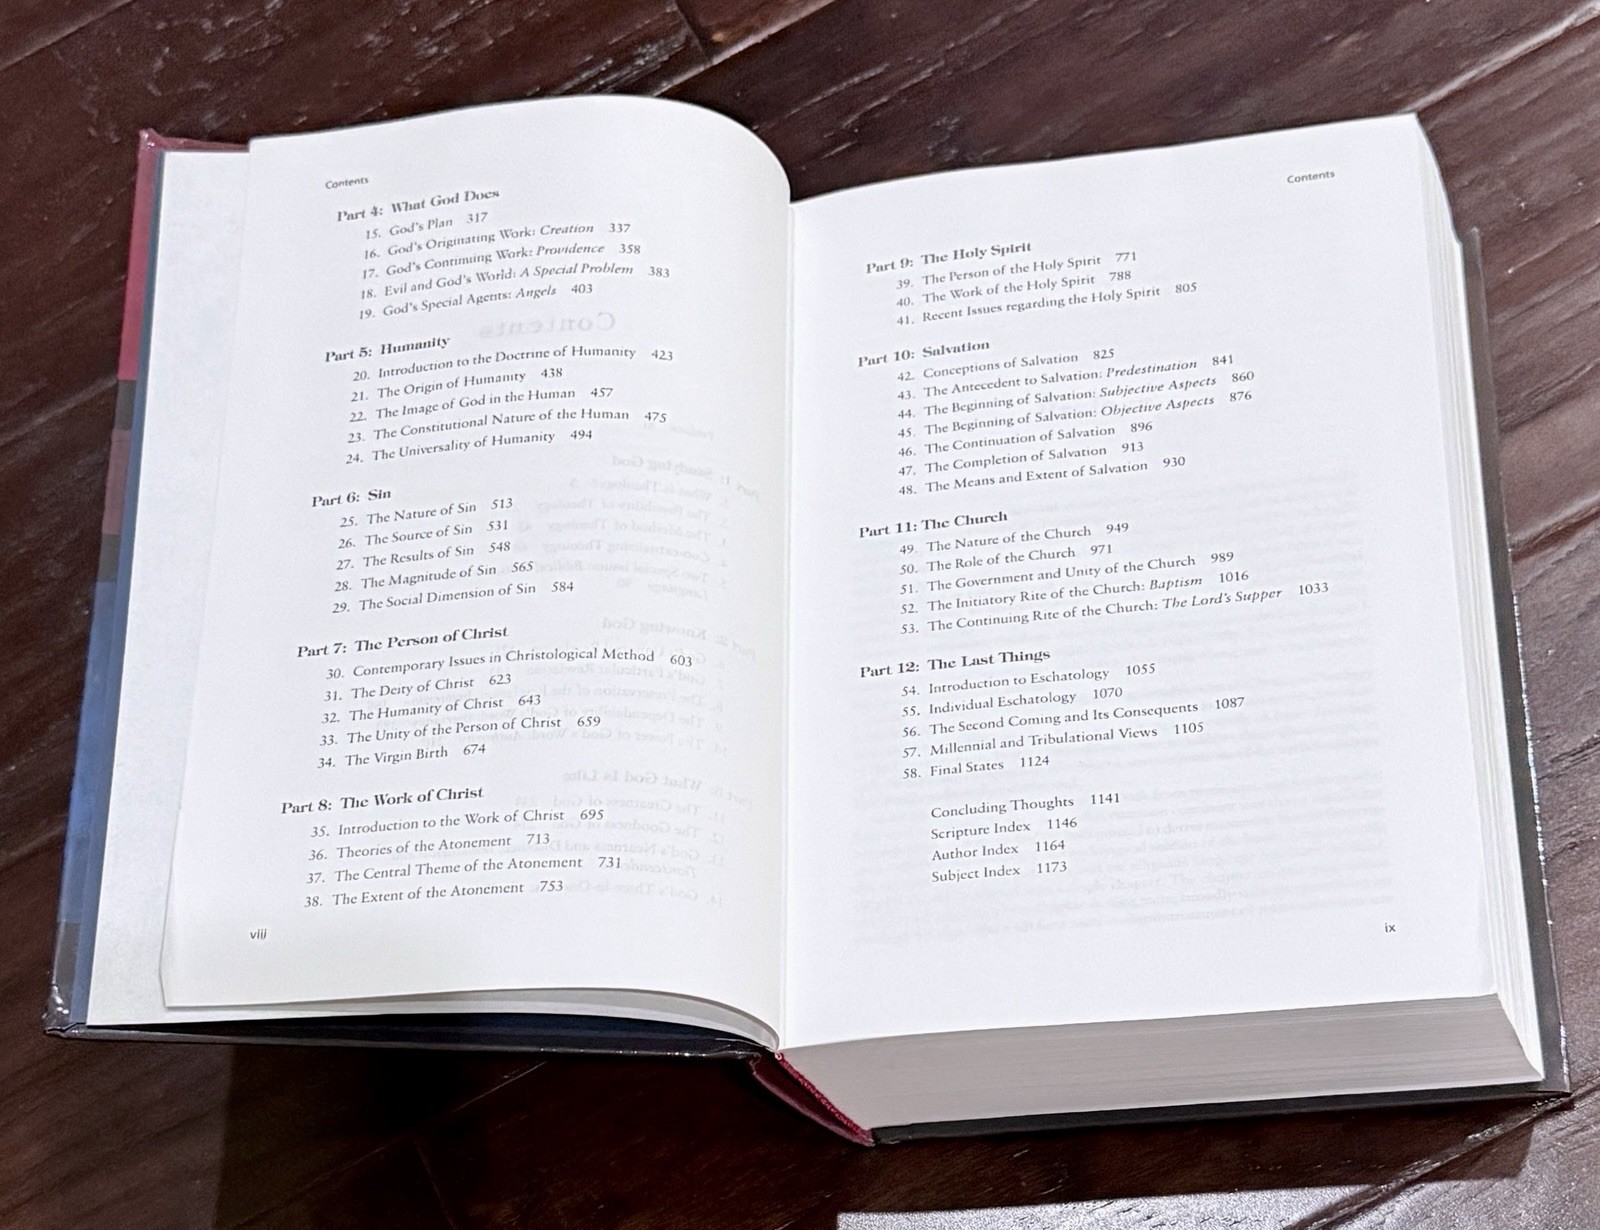 Contents
Part 4: What God Does
15. God's Plan 317
16. God's Originating Work: Creation 337
17. God's Continuing Work: Providence 358
18. Evil and God's World: A Special Problem 383
19. God's Special Agents: Angels 403
Part 5: Humanity
20. Introduction to the Doctrine of Humanity 423
21. The Origin of Humanity 438
22. The Image of God in the Human 457
23. The Constitutional Nature of the Human 475
24. The Universality of Humanity 494
Part 6: Sin
25. The Nature of Sin 513
26. The Source of Sin 531
27. The Results of Sin 548
28. The Magnitude of Sin 565
29. The Social Dimension of Sin 584
Part 7: The Person of Christ
30. Contemporary Issues in Christological Method 603
31. The Deity of Christ 623
32. The Humanity of Christ 643
33. The Unity of the Person of Christ 659
34. The Virgin Birth 674
Part 8: The Work of Christ
35. Introduction to the Work of Christ 695
36. Theories of the Atonement 713
37. The Central Theme of the Atonement 731
38. The Extent of the Atonement 753
viii
Contents
Part 9: The Holy Spirit
39. The Person of the Holy Spirit 771
40. The Work of the Holy Spirit 788
41. Recent Issues regarding the Holy Spirit 805
Part 10: Salvation
42. Conceptions of Salvation 825
43. The Antecedent to Salvation: Predestination 841
44. The Beginning of Salvation: Subjective Aspects 860
45. The Beginning of Salvation: Objective Aspects 876
46. The Continuation of Salvation 896
47. The Completion of Salvation 913
48. The Means and Extent of Salvation 930
Part 11: The Church
49. The Nature of the Church 949
50. The Role of the Church 971
51. The Government and Unity of the Church 989
52. The Initiatory Rite of the Church: Baptism 1016
53. The Continuing Rite of the Church: The Lord's Supper 1033
Part 12: The Last Things
54. Introduction to Eschatology 1055
55. Individual Eschatology 1070
56. The Second Coming and Its Consequents 1087
57. Millennial and Tribulational Views 1105
58. Final States 1124
Concluding Thoughts 1141
Scripture Index 1146
Author Index 1164
Subject Index 1173
ix